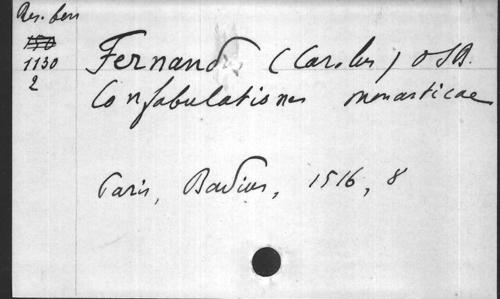 Res. ben
150
1130
2
Fernand, (Carolus) OSB.
Confabulationes monasticae
Paris, Badius, 1516, 8